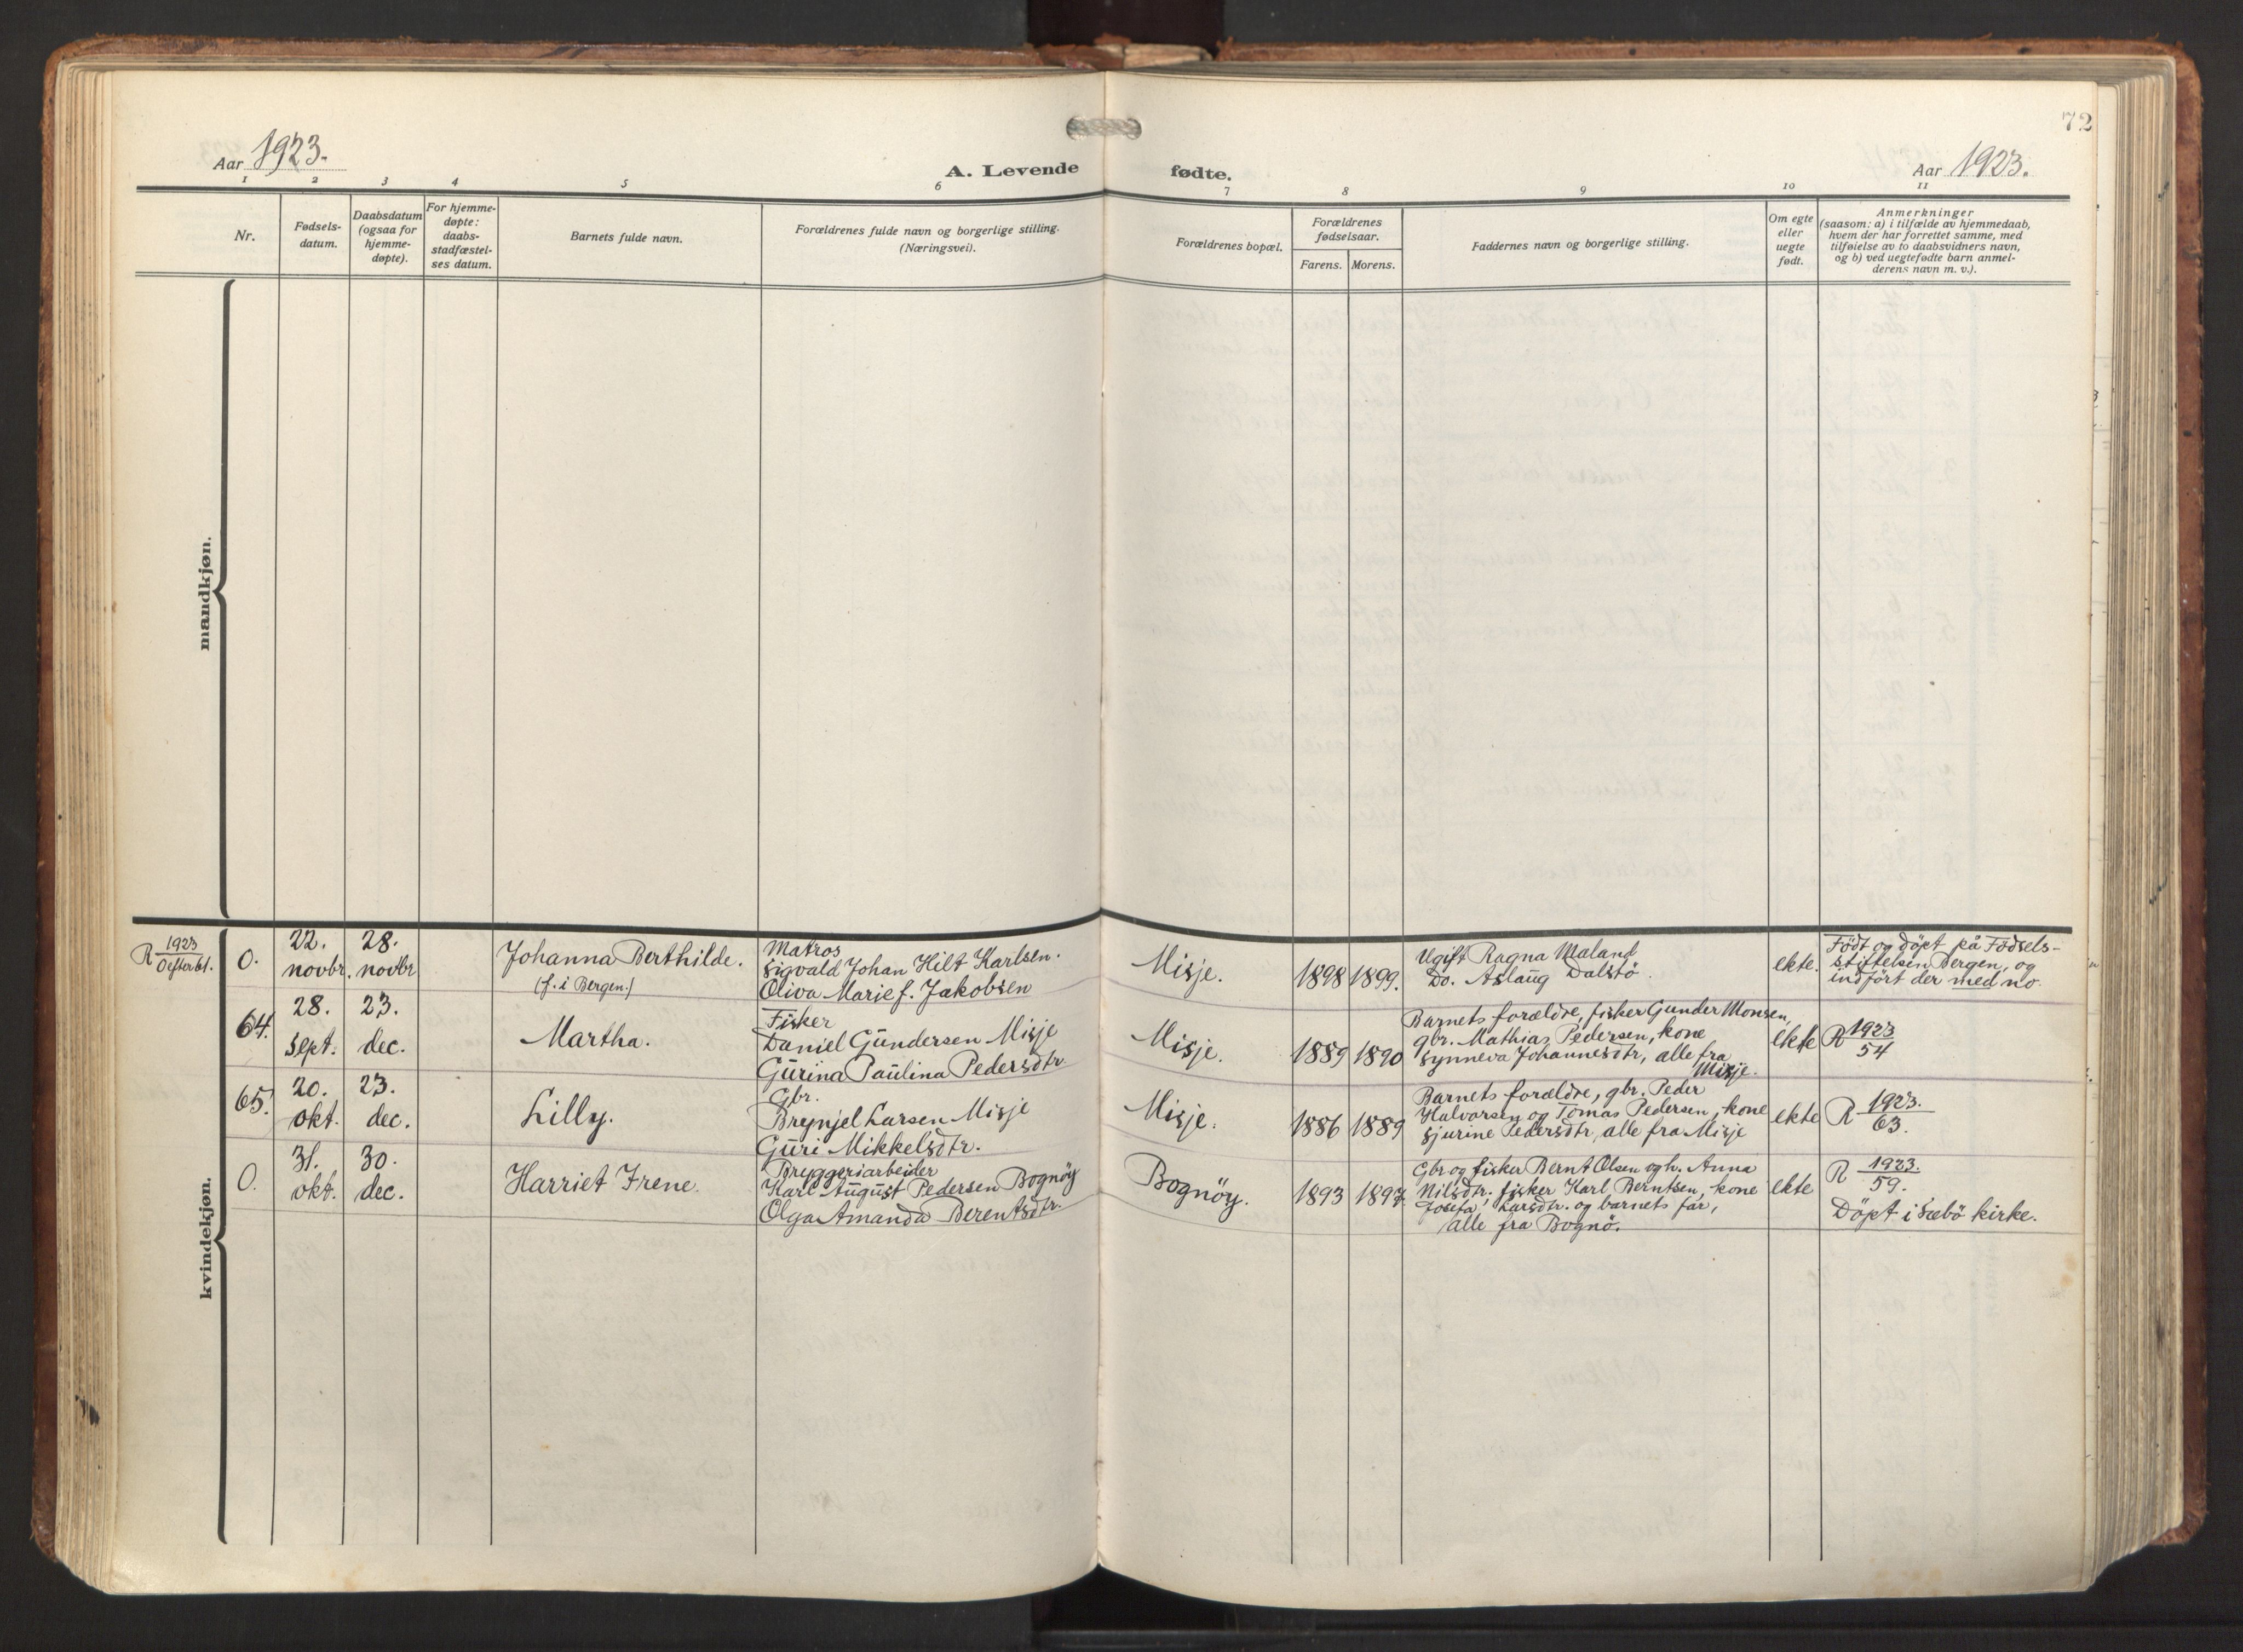 72
Aar 1923.
A. Levende fødte.
Aar 1923.
1 2 3 4 5 6 7 8 9 10 11
Nr.
Fødsels-
datum.
Daabsdatum
(ogsaa for
hjemme-
døpte).
For hjemme-
døpte:
daabs-
stadfæstel-
ses datum.
Barnets fulde navn.
Forældrenes fulde navn og borgerlige stilling.
(Næringsvei).
Forældrenes bopæl.
Forældrenes
fødselsaar.
Farens. Morens.
Faddernes navn og borgerlige stilling.
Om egte
eller
uegte
født.
Anmerkninger
(saasom: a) i tilfælde av hjemmedaab,
hvem der har forrettet samme, med
tilføielse av to daabsvidners navn,
og b) ved uegtefødte barn anmel-
derens navn m. v.).
mandkjøn.
kvindekjøn.
R 1923
0 efter 61.
0.
22.
novbr.
28.
novbr
Johanna Berthilde.
(f. i Bergen.)
Matros
Sigvald Johan Hilt Karlsen.
Oliva Marie f. Jakobsen
Misje.
1898
1899.
Ugift Ragna Maland
Do. Aslaug Dalstö.
ekte.
Födt og döpt på Födsels-
stiftelsen Bergen, og
indfört der med no.
64.
28.
sept.
23.
dec.
Martha.
Fisker
Daniel Gundersen Misje
Gurina Paulina Pedersdtr.
Misje.
1889
1890
Barnets forældre, fisker Gunder Monsen,
gbr. Mathias Pedersen, kone
Synneva Johannesdtr, alle fra
Misje.
ekte
R 1923
54
65.
20.
okt.
23.
dec.
Lilly.
Gbr.
Brynjel Larsen Misje
Guri Mikkelsdtr.
Misje.
1886
1889
Barnets forældre, gbr. Peder
Halvorsen og Tomas Pedersen, kone
Sjurine Pedersdtr, alle fra Misje
ekte
R 1923.
63.
0.
31.
okt.
30.
dec.
Harriet Irene.
Bryggeriarbeider
Karl August Pedersen Bognöy
Olga Amanda Berentsdtr.
Bognöy.
1893
1897.
Gbr og fisker Bernt Olsen og h. Anna
Nilsdtr, fisker Karl Berntsen, kone
Josefa Larsdtr. og barnets far,
alle fra Bognö.
ekte
R 1923.
59.
Döpt i Sæbö kirke.